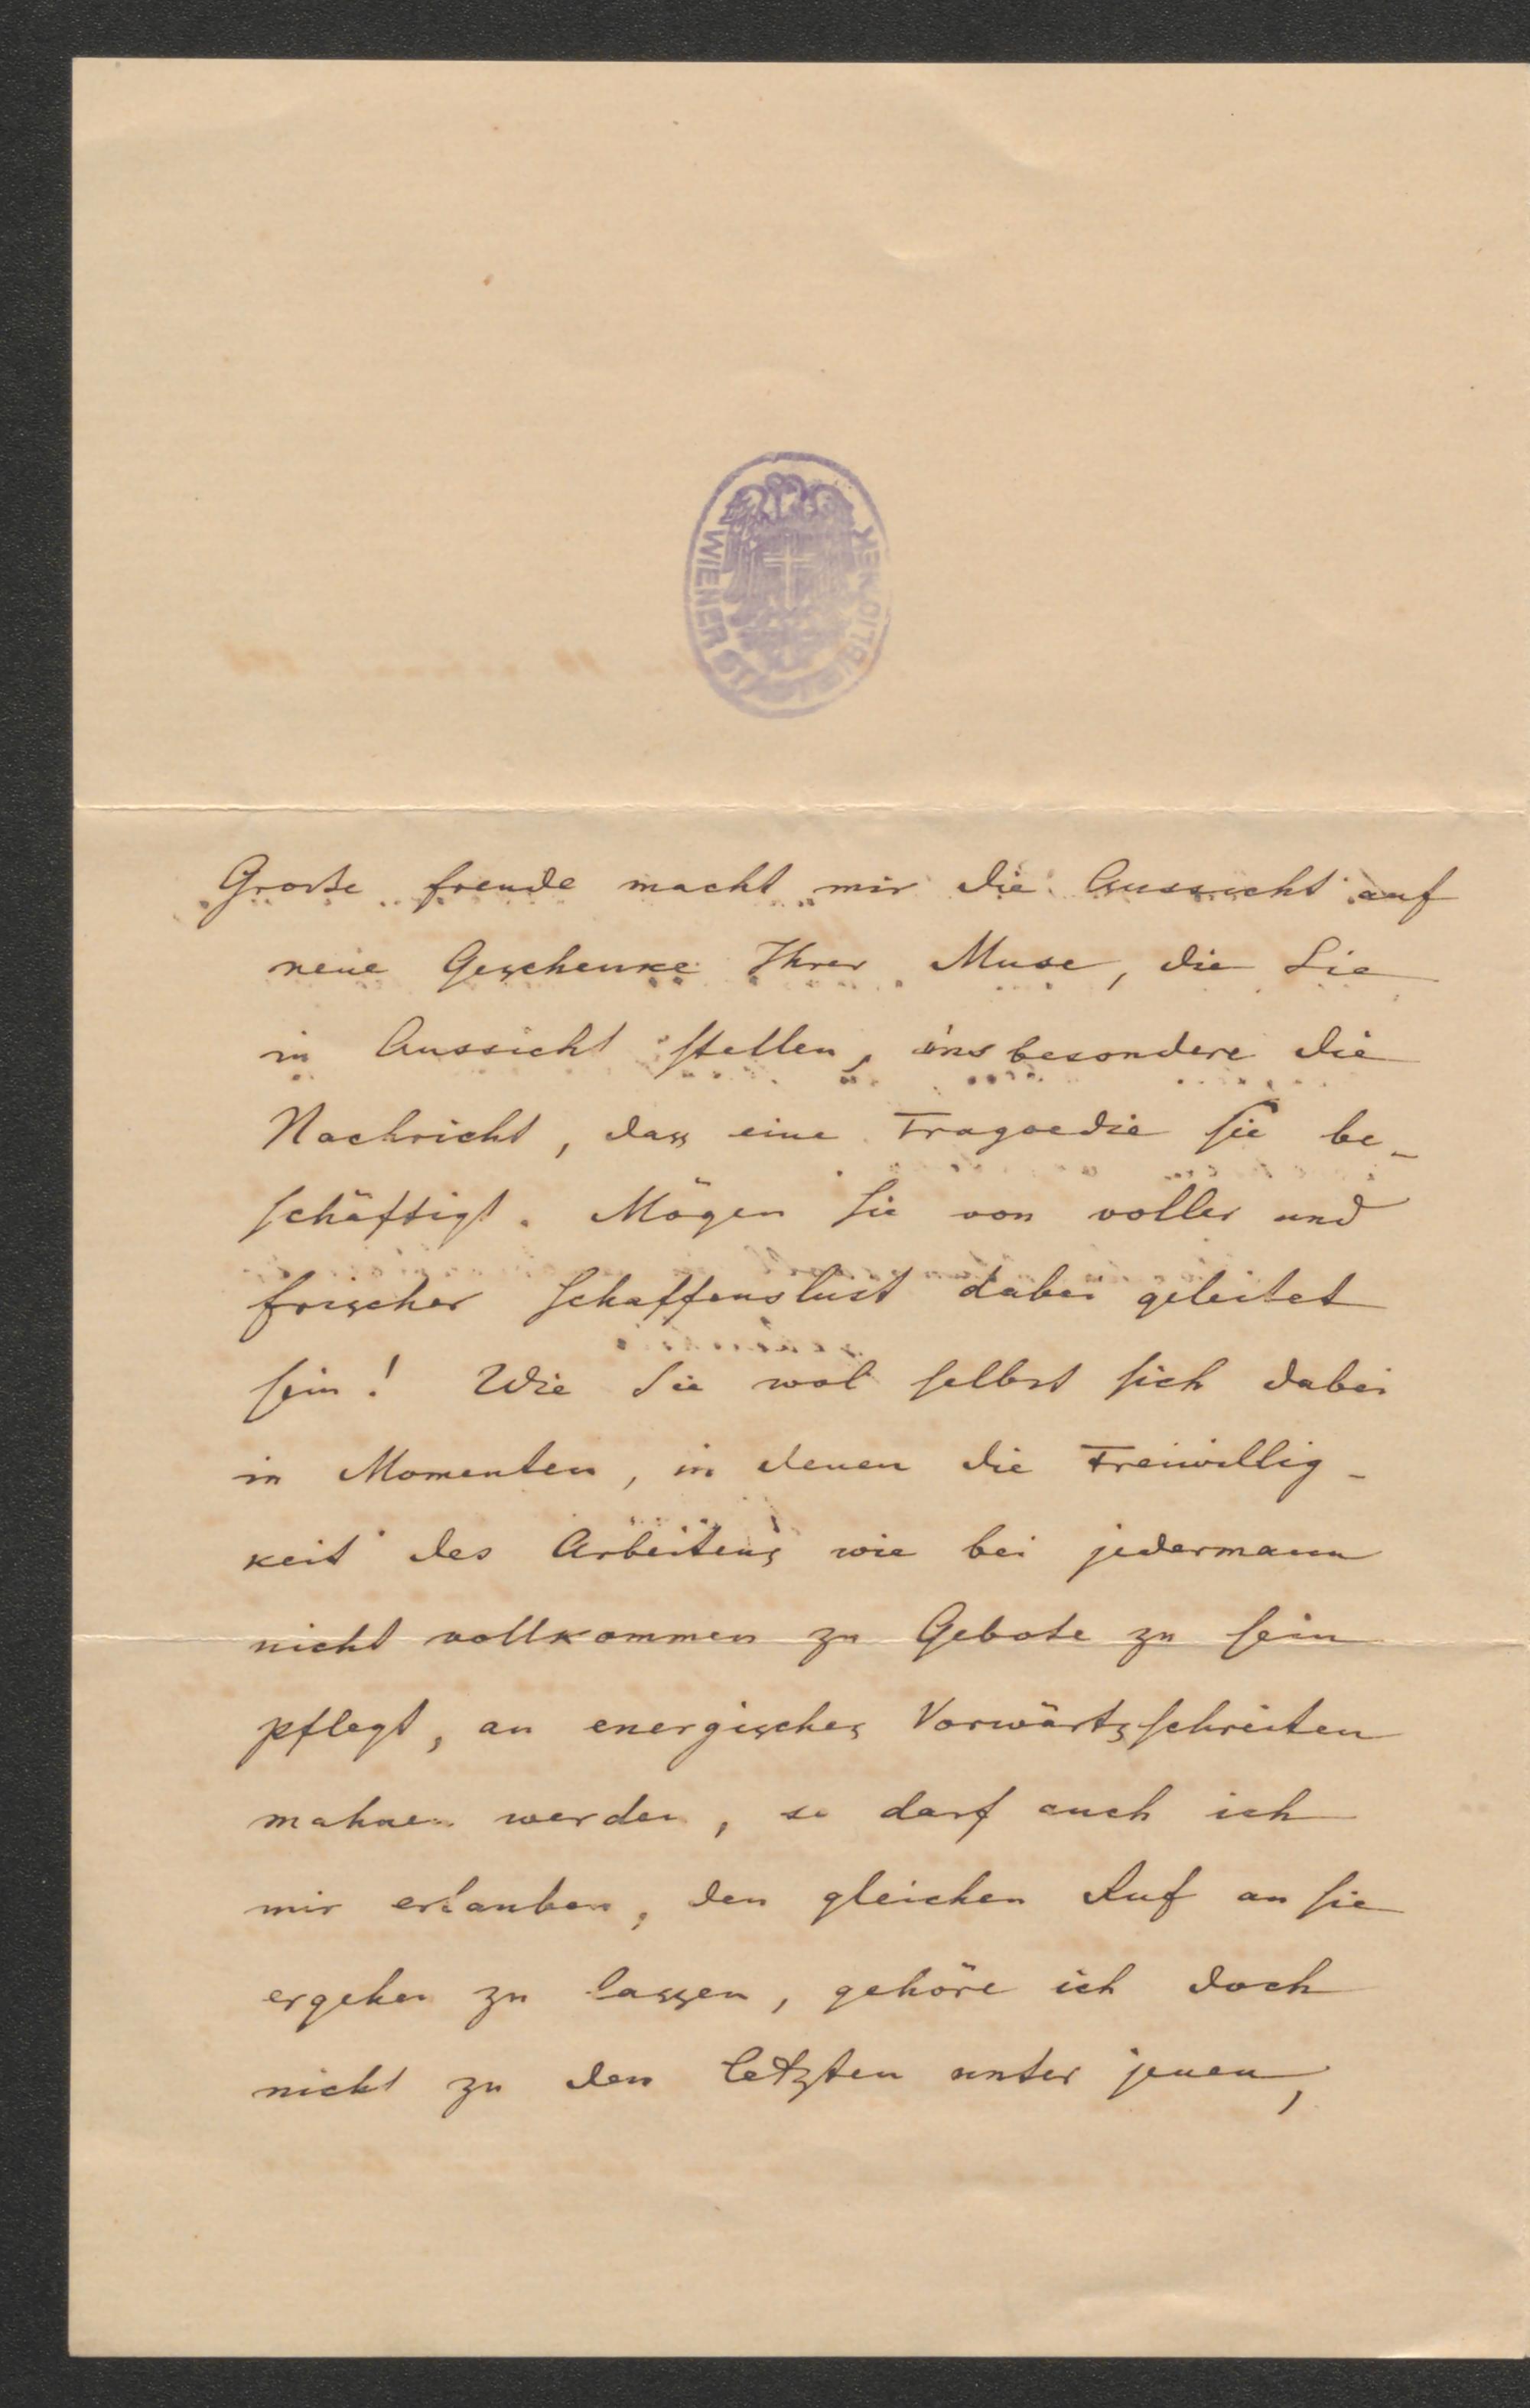 WIENER STADTBIBLIOTHEK
Große Freude macht mir die Aussicht auf
neue Geschenke Ihrer Muse, die Sie
in Aussicht stellen, insbesondere die
Nachricht, dass eine Tragoedie Sie be-
schäftigt. Mögen Sie von voller und
frischer Schaffenslust dabei geleitet
sein! Wie Sie wol selbst sich dabei
in Momenten, in denen die Freiwillig-
keit des Arbeitens wie bei jedermann
nicht vollkommen zu Gebote zu sein
pflegt, an energisches Vorwärtsschreiten
mahnen werden, so darf auch ich
mir erlauben, den gleichen Ruf an Sie
ergehen zu lassen, gehöre ich doch
nicht zu den letzten unter jenen,